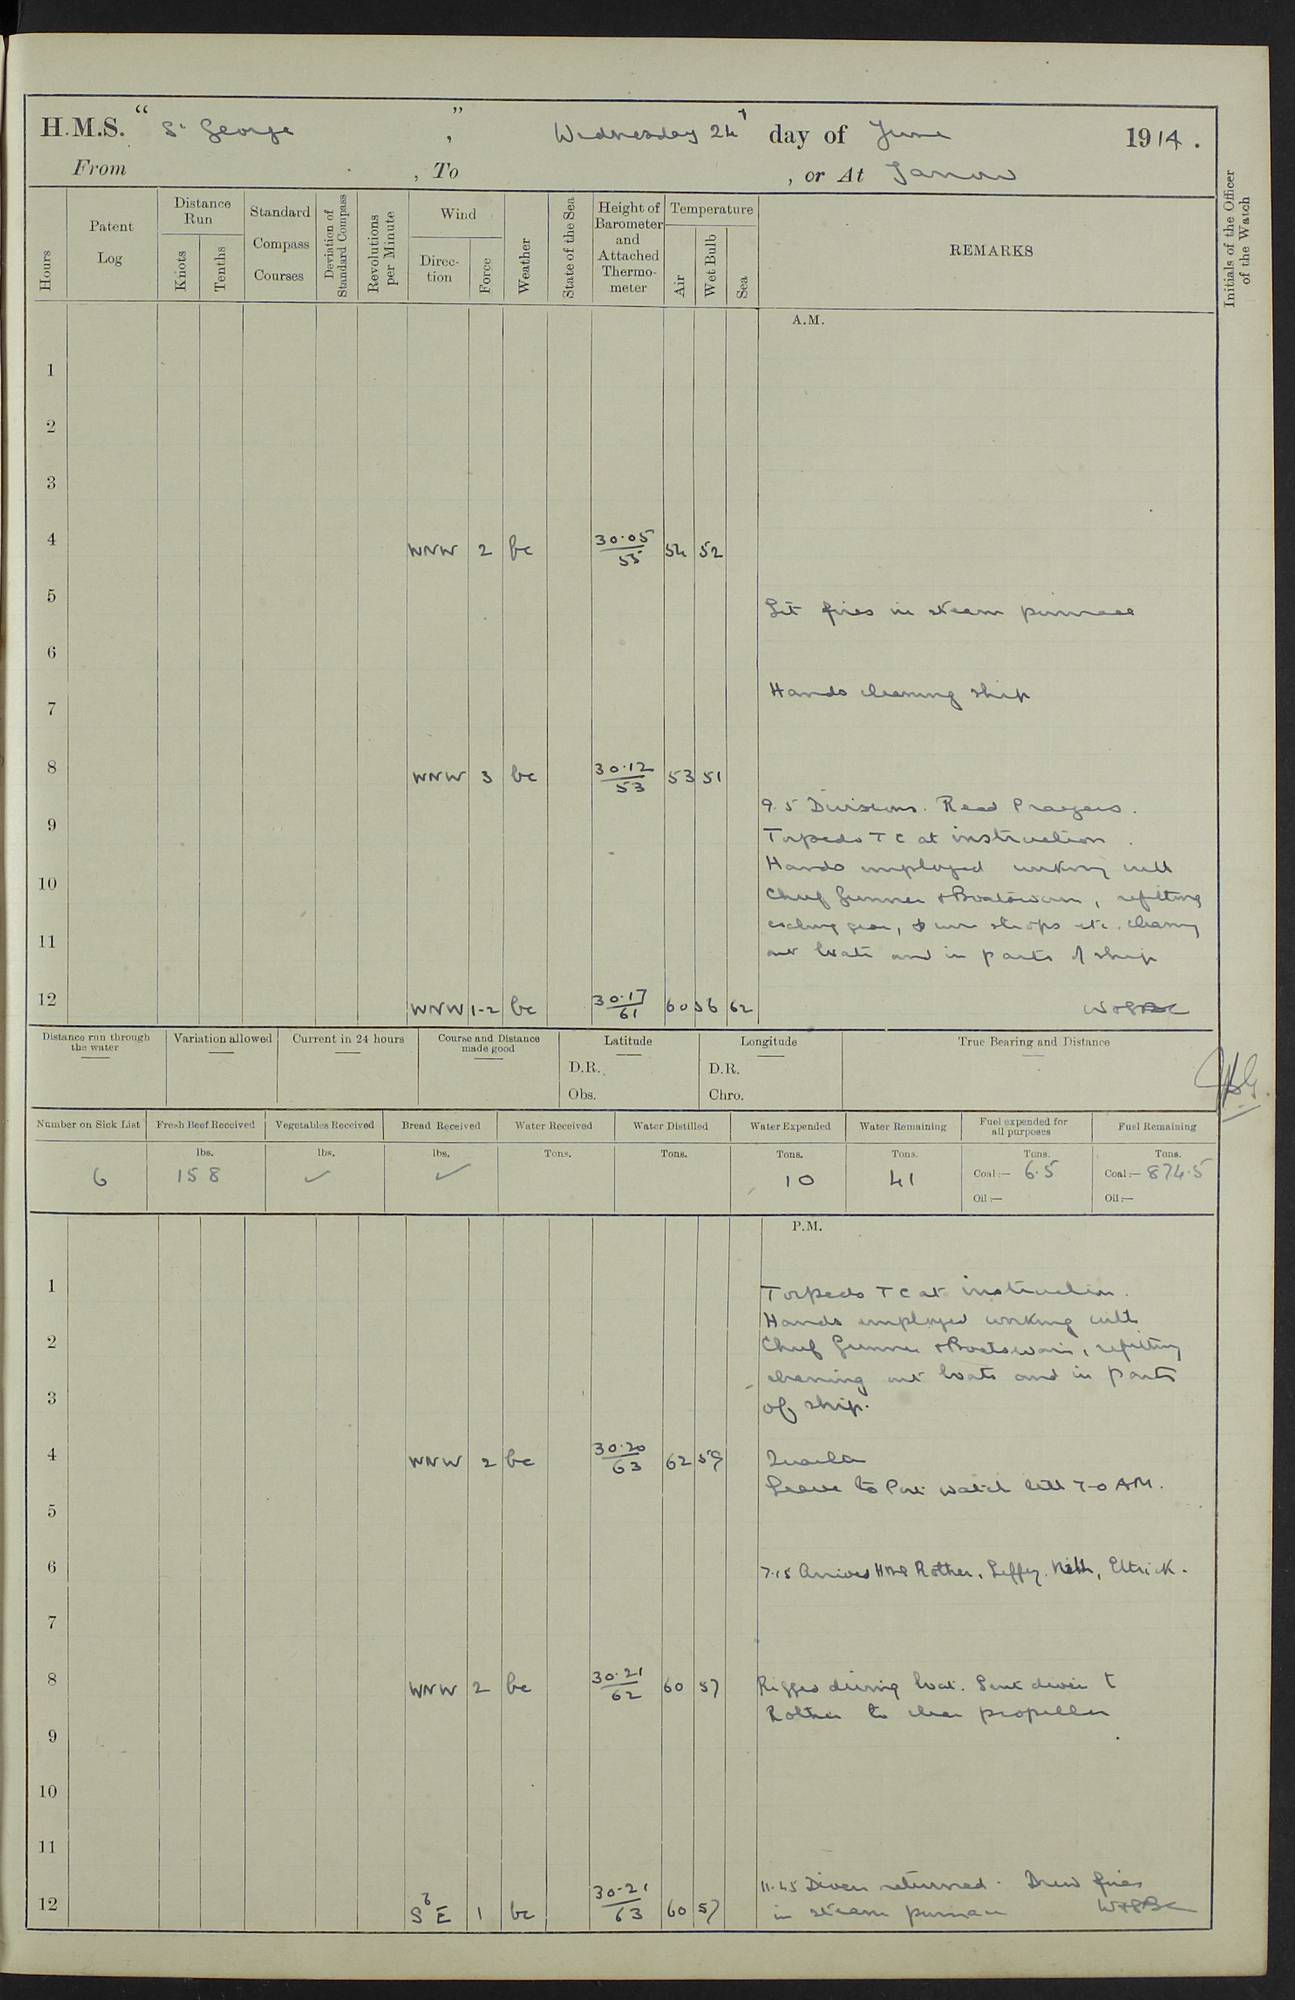 H.M.S. "St George", Wednesday 24th day of June 1914.
From , To , or At Jarrow
Hours
Patent Log
Distance Run
Knots
Tenths
Standard Compass Courses
Deviation of Standard Compass
Revolutions per Minute
Wind
Direction
Force
Weather
State of the Sea
Height of Barometer and Attached Thermometer
Temperature
Air
Wet Bulb
Sea
REMARKS
Initials of the Officer of the Watch
A.M.
1
2
3
4 WNW 2 bc 30.05/55 54 52
5
Lit fires in steam pinnace
6
Hands cleaning ship
7
8 WNW 3 bc 30.12/53 53 51
9.5 Divisions. Read Prayers.
9
Torpedo TC at instruction.
Hands employed working with
10
Chief Gunner & Boatswain, refitting
coaling gear, & wire strops etc. cleaning
11
out boats and in parts of ship
12 WNW 1-2 bc 30.17/61 60 56 62
Distance run through the water
Variation allowed
Current in 24 hours
Course and Distance made good
Latitude
D.R.
Obs.
Longitude
D.R.
Chro.
True Bearing and Distance
Number on Sick List
Fresh Beef Received
Vegetables Received
Bread Received
Water Received
Water Distilled
Water Expended
Water Remaining
Fuel expended for all purposes
Fuel Remaining
lbs. lbs. lbs. Tons. Tons. Tons. Tons. Tons. Tons.
6 158 ✓ ✓ 10 41 Coal:— 6.5 Coal:— 874.5
Oil:— Oil:—
P.M.
1
Torpedo TC at instruction.
Hands employed working with
2
Chief Gunner & Boatswain, refitting
cleaning out boats and in parts
3
of ship.
4 WNW 2 bc 30.20/63 62 59
Quarters
Leave to Port watch till 7-0 AM.
5
6
7.15 Arrived HMS Rother, Liffey, Nith, Ettrick.
7
8 WNW 2 bc 30.21/62 60 57
Rigged diving boat. Sent diver to
Rother to clear propeller
9
10
11
11.45 Divers returned. Drew fires
12 SbE 1 bc 30.21/63 60 57
in steam pinnace